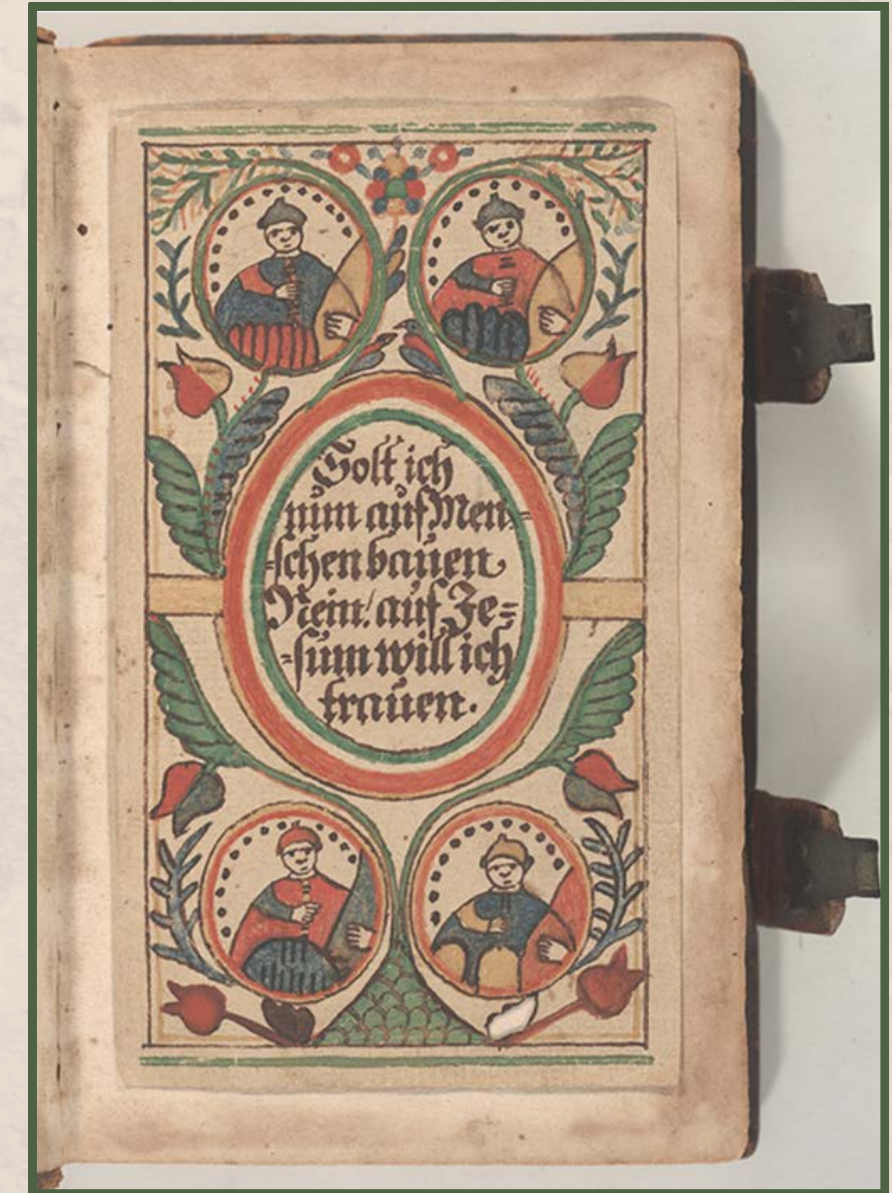 Solt ich
nun auf Men=
=schen bauen
Nein! auf Je=
=sum will ich
trauen.